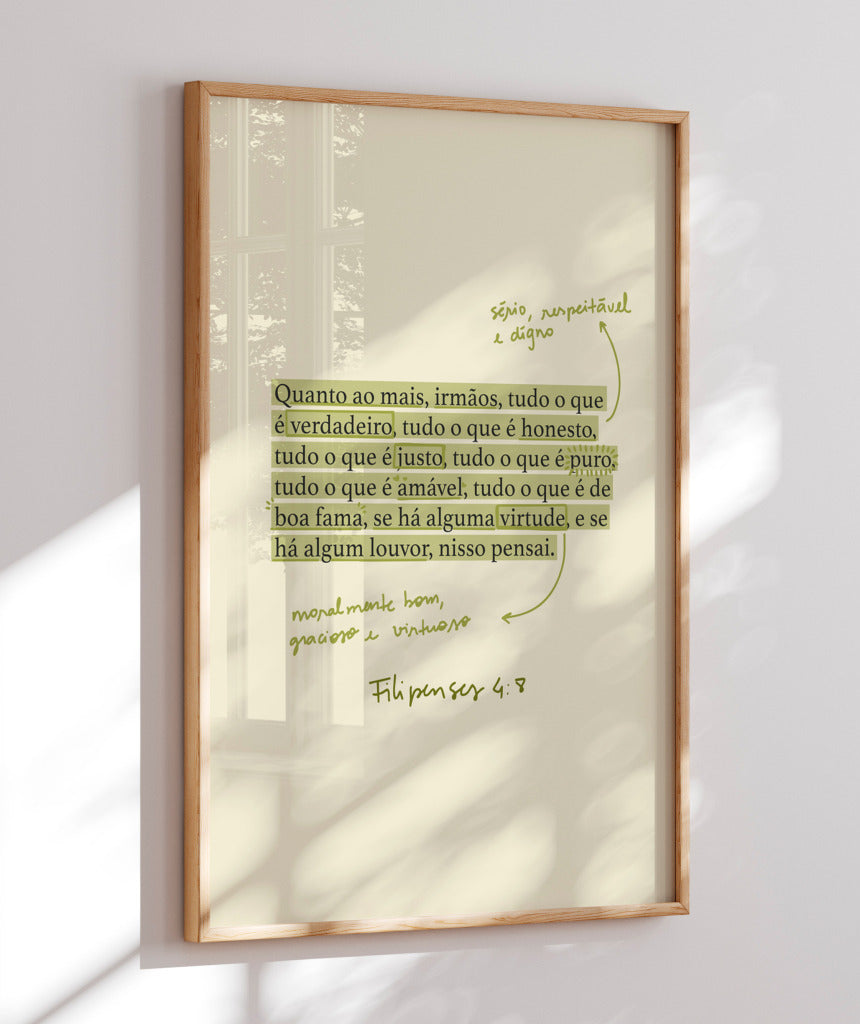 sério, respeitável
e digno
Quanto ao mais, irmãos, tudo o que
é verdadeiro, tudo o que é honesto,
tudo o que é justo, tudo o que é puro,
tudo o que é amável, tudo o que é de
boa fama, se há alguma virtude, e se
há algum louvor, nisso pensai.
moralmente bom,
gracioso e virtuoso
Filipenses 4:8